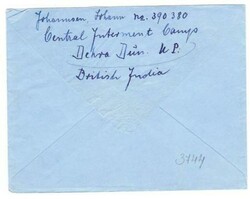 Johannsen, Johann no. 390380
Central Interment Camps
Dehra Dun. U.P.
British India
3144